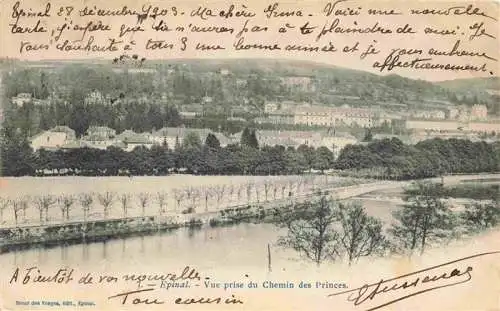 Epinal 28 décembre 1903 - Ma chère Irma - Voici une nouvelle
carte, j'espère que tu n'auras pas à te plaindre de moi. Je
vous souhaite à tous 3 une bonne année et je vous envoie
affectueusement
A bientôt de vos nouvelles
1. - Epinal. - Vue prise du Chemin des Princes.
Ton cousin
Bazar des Vosges, édit., Epinal.